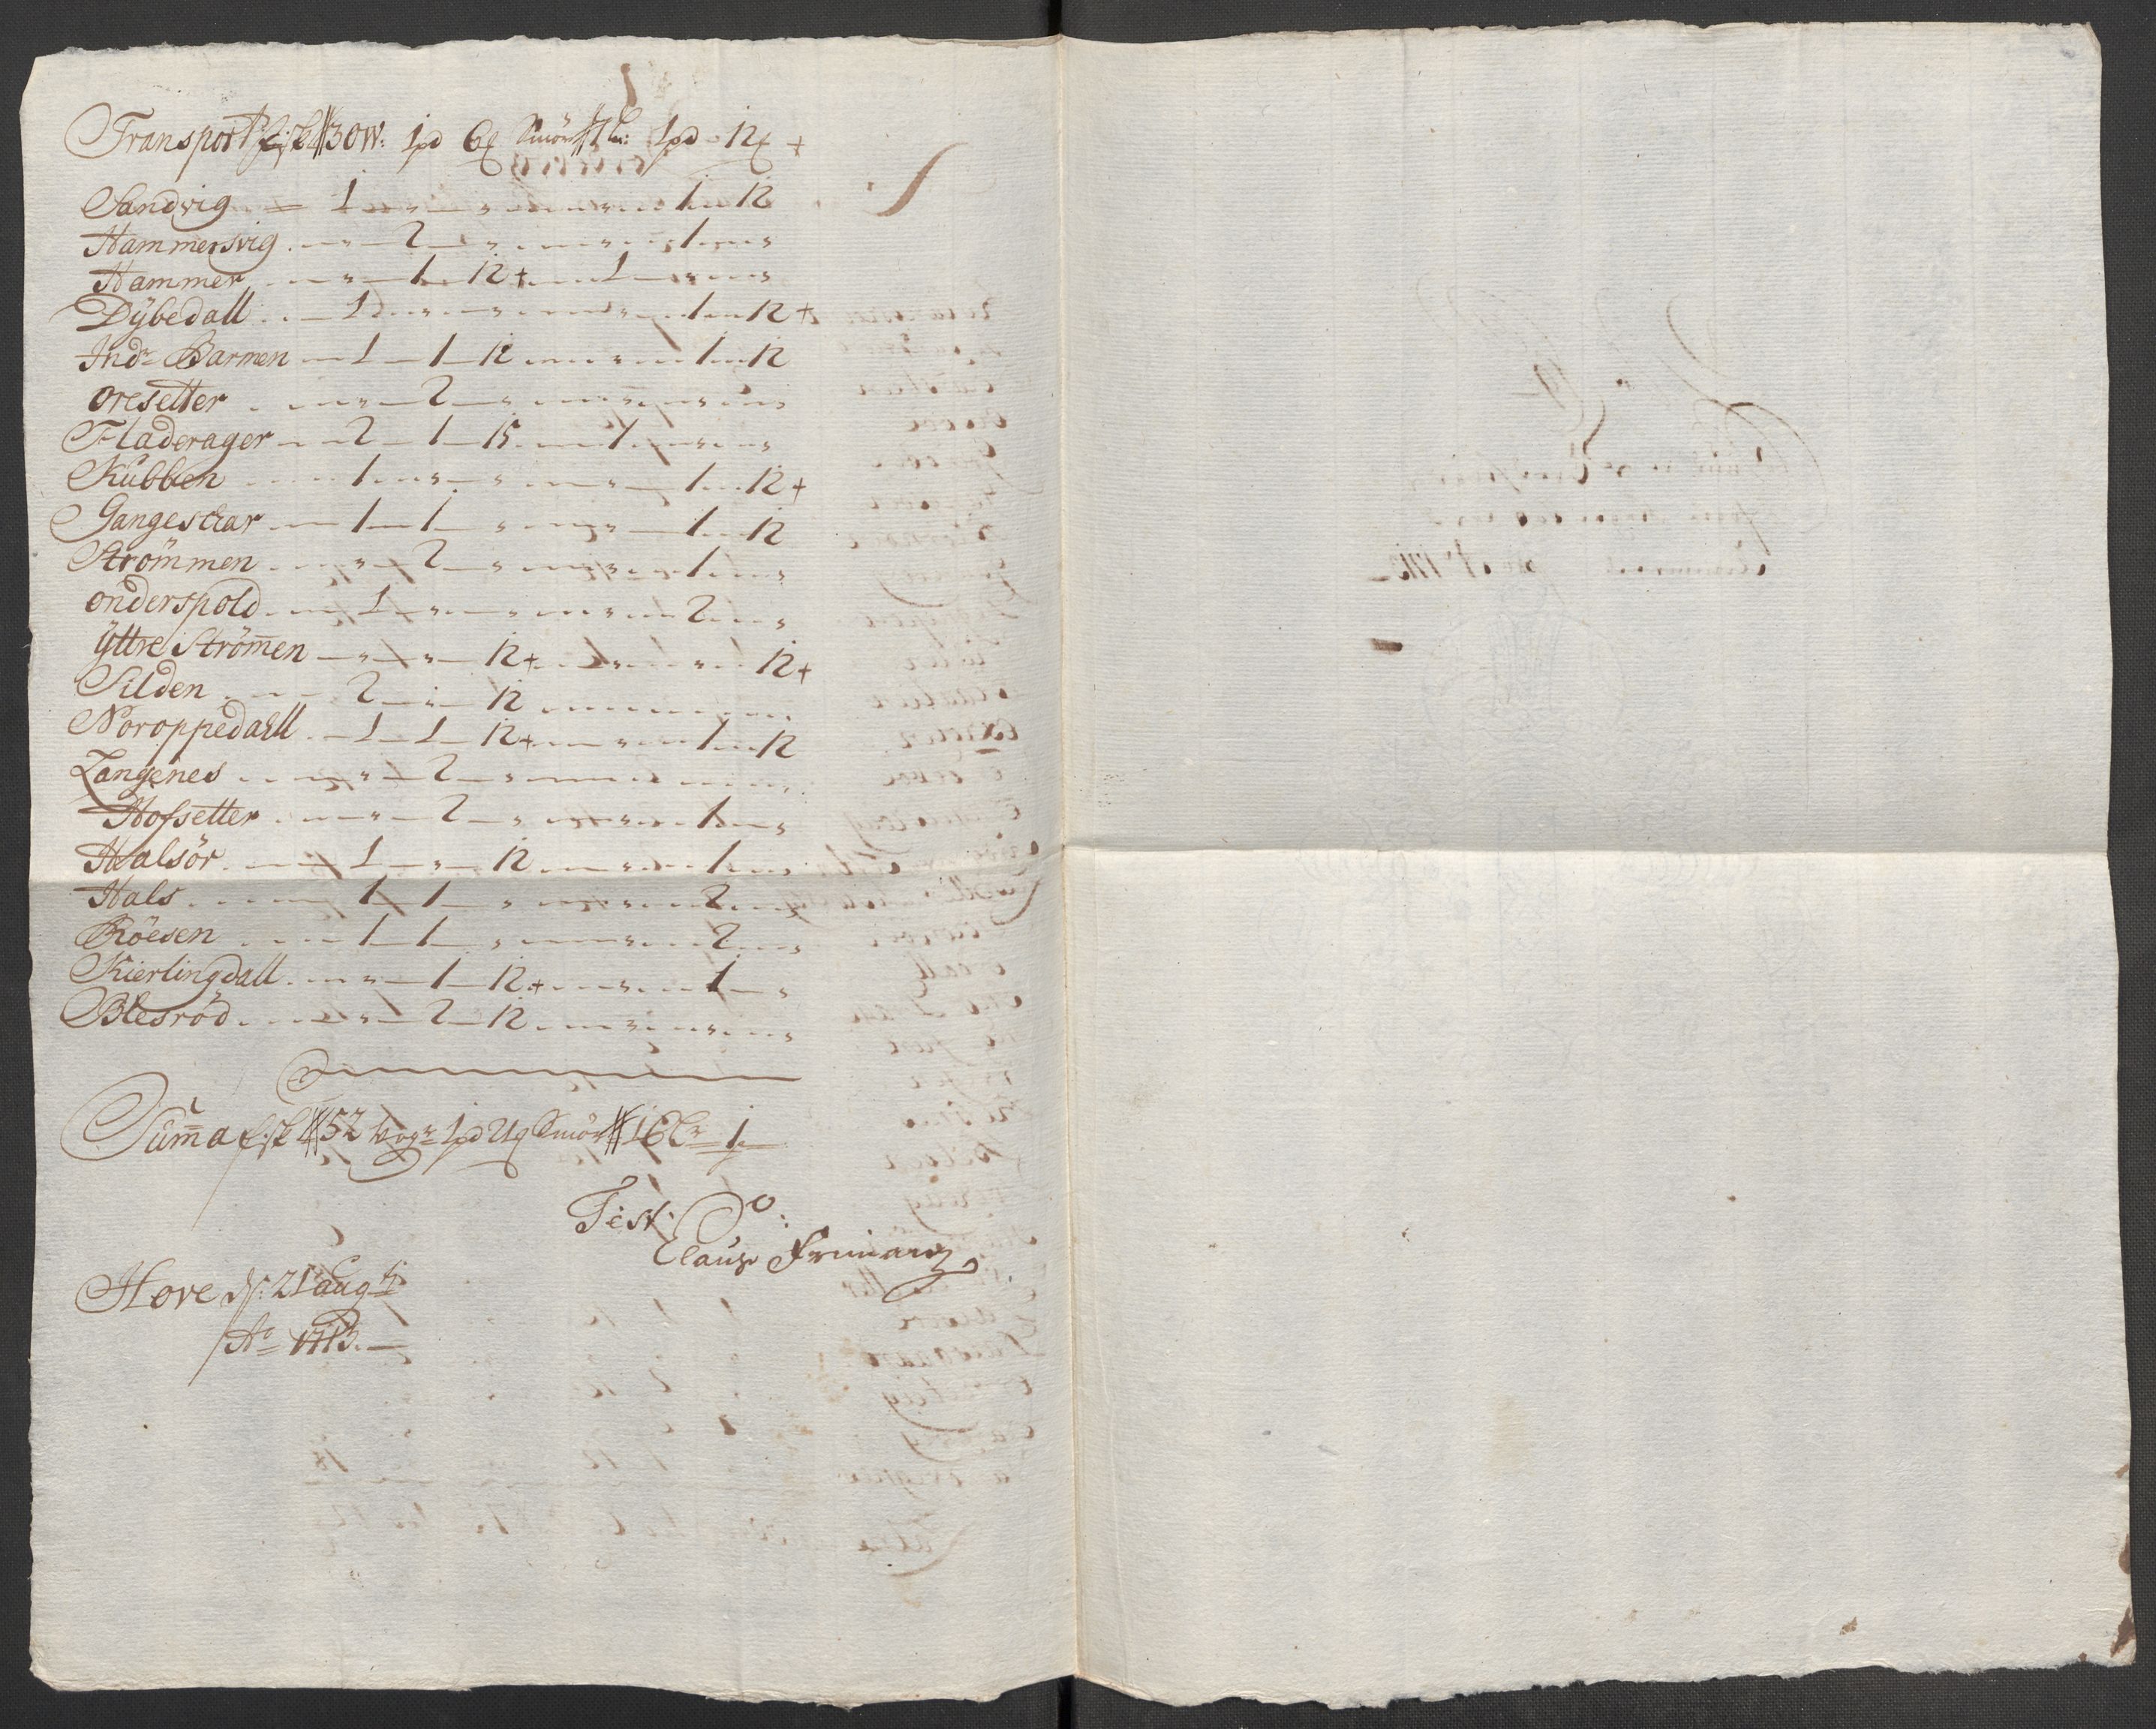 Transport fisk 30 W: 1 pd 6 Smör 1 pd - 12 +
Sandvig = 1 „ „ „ 1 12
Hammersvig „ 2 „ „ 1 „
Hammer „ 1 12+ 1 „ „
Dÿbedall 1 „ „ „ 1 12 +
Indr Barmen 1 1 12 „ 1 12
Oresetter „ 2 „ „ „ „
Fladerager 2 1 15 1 „ „
Kubben 1 „ „ „ 1 12+
Gangeskar 1 1 „ „ 1 12
Strömmen „ 2 „ „ 1 „
Onderspold 1 „ „ „ 2 „
Ÿttre Strömen „ „ 12+ „ „ 12+
Silden 2 „ 12
Noroppedall 1 1 12+ „ 1 12
Langenes „ 2 „
Hofsetter „ 2 „ „ 1 „
Halsör 1 „ 12 „ 1 „
Hals 1 1 „ „ 2 „
Röesen 1 1 „ „ 2 „
Kierlingdall „ 1 12+ „ 1 „
Blesröd „ 2 12 „ „ „
Suma fisk 52 1 pd Smör 16 1
Test:
Claus
Hove d: 21 aug
Ao 1713.